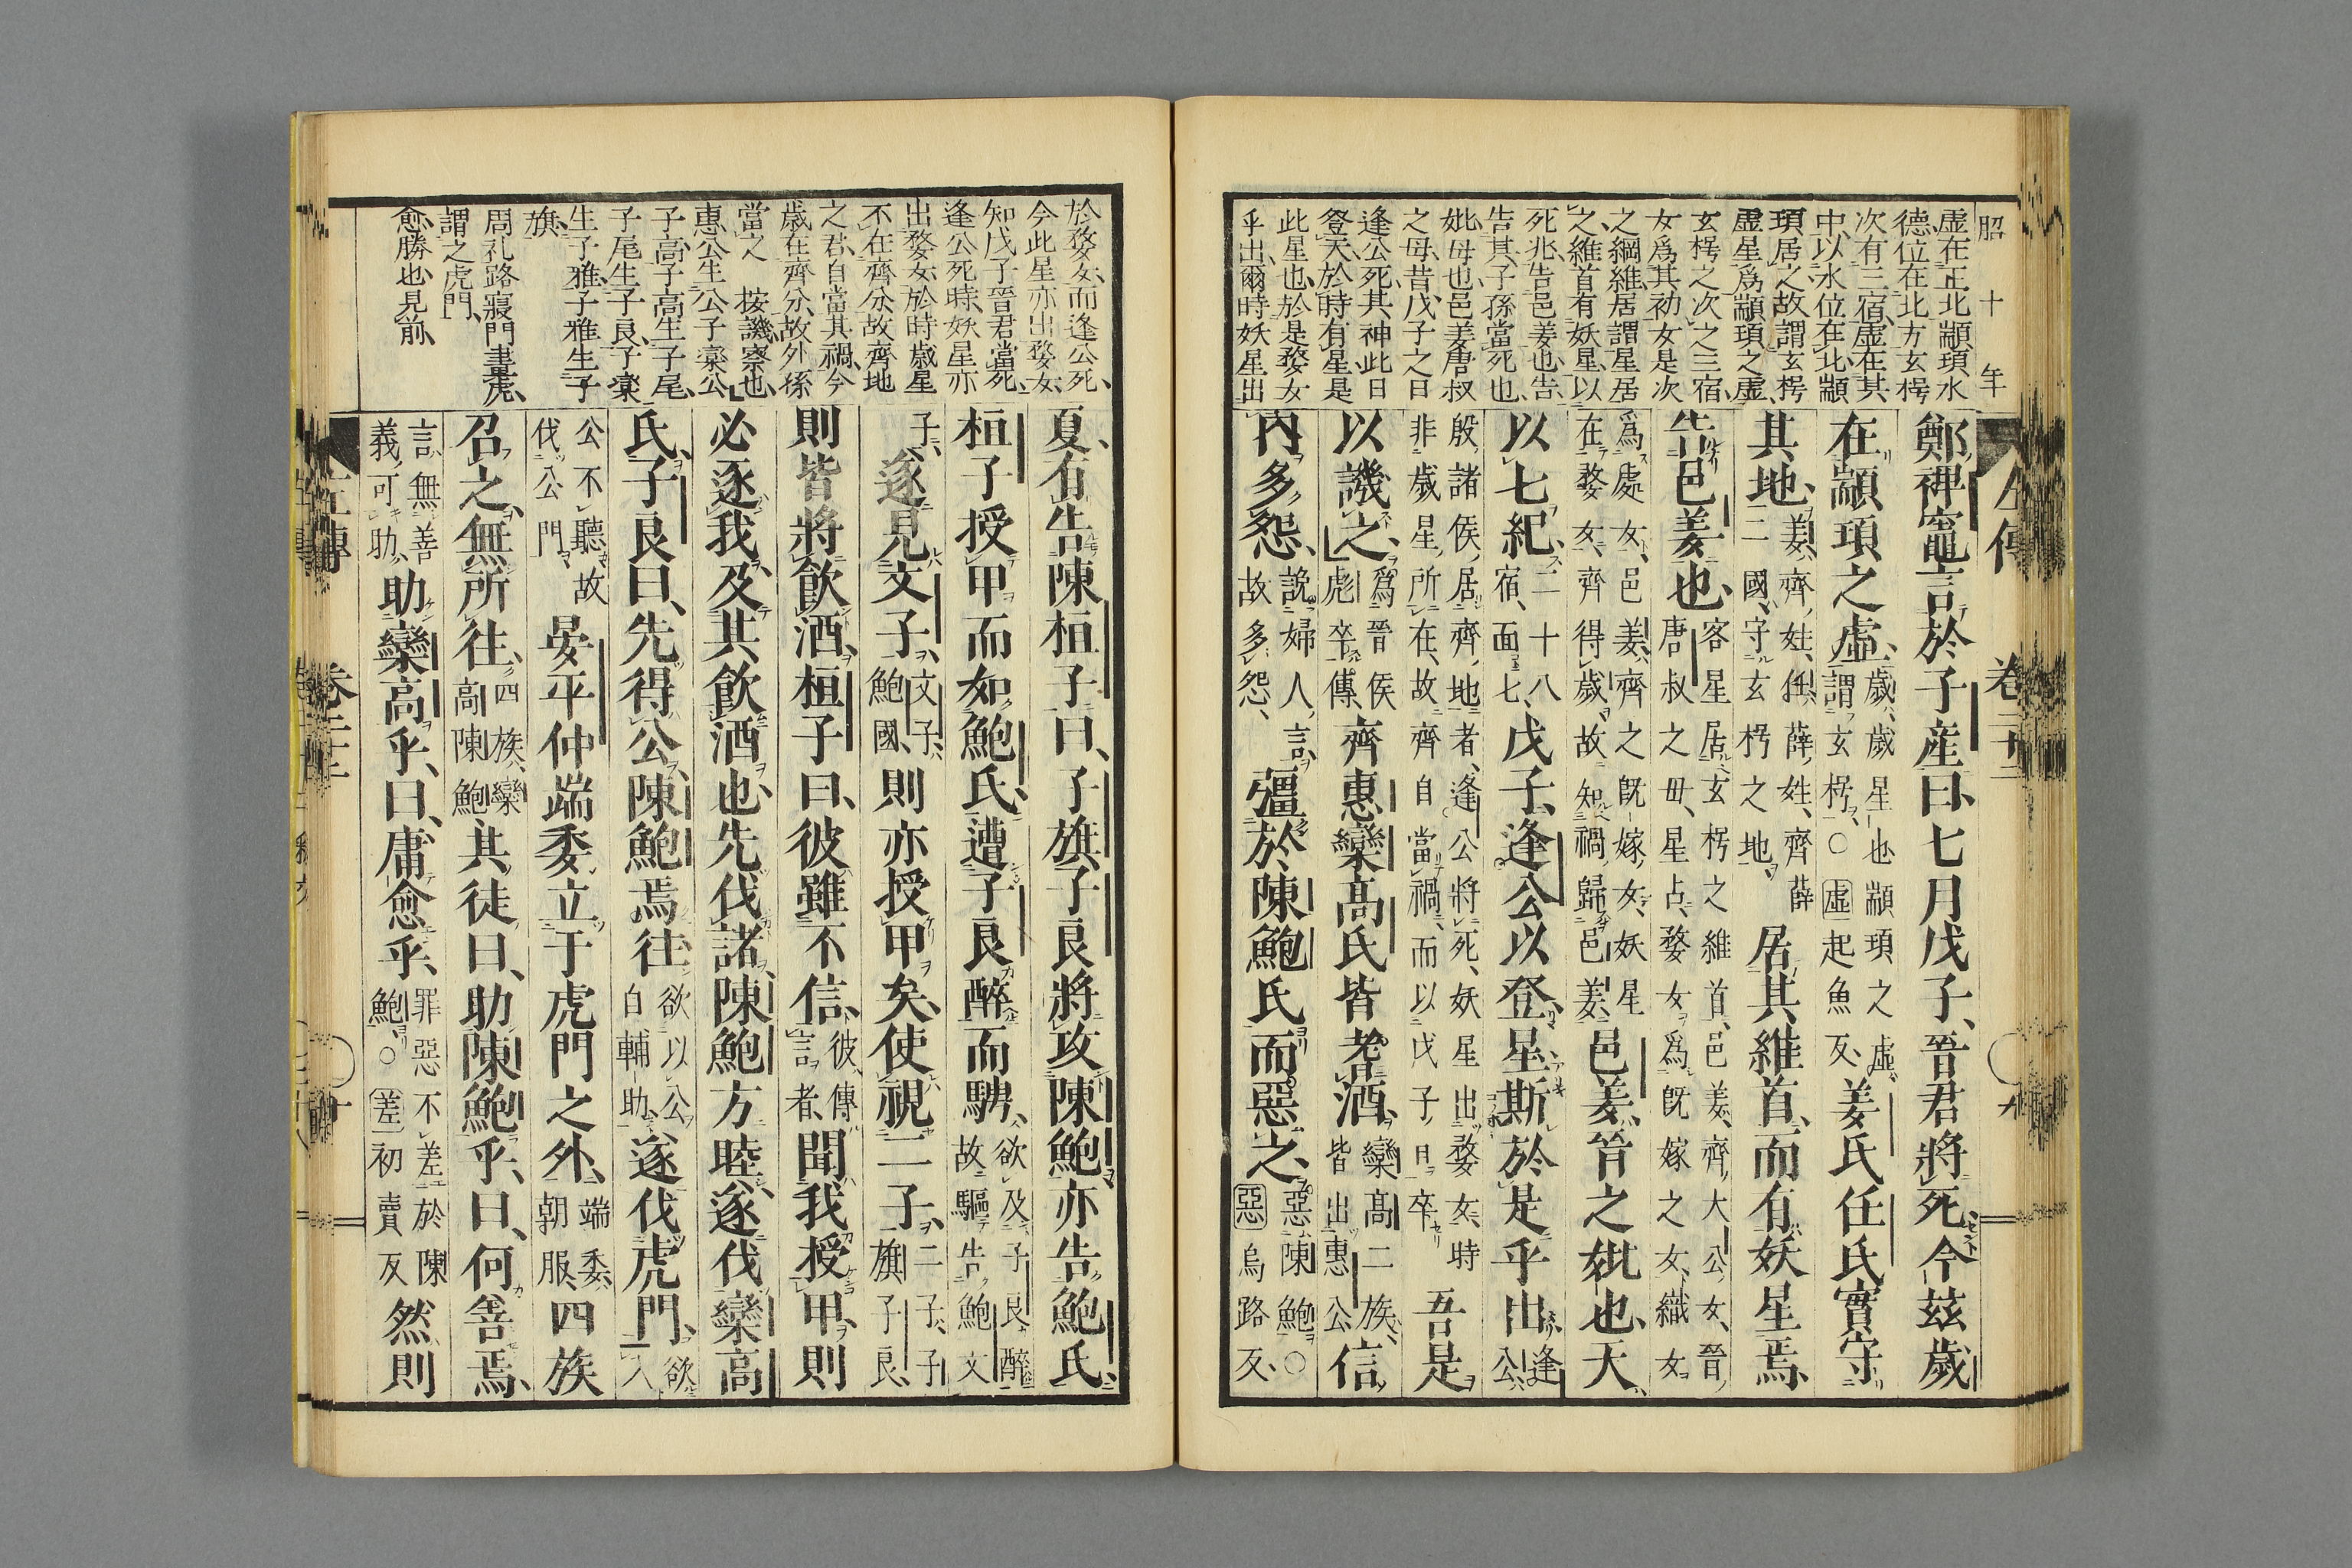 昭十年
虚在正北顓頊水
德位在北方玄枵
次有三宿虚在其
中以水位在北顓
頊居之故謂玄枵
虚星爲顓頊之虚
玄枵之次之三宿
女爲其初女是次
之綱維居謂星居
之維首有妖星以
死兆告邑姜也告
告其子孫當死也
妣母也邑姜唐叔
之母昔戊子之日
逢公死其神此日
登天於時有星是
此星也於是婺女
乎出爾時妖星出
左傳
卷二十二
鄭裨竈言於子産曰七月戊子晉君將死今茲歲
在顓頊之虚歲歲星也顓頊之虚謂玄枵○虚起魚反姜氏任氏實守
其地姜齊姓任薛姓齊薛二國守玄枵之地居其維首而有妖星焉
告邑姜也客星居玄枵之維首邑姜齊大公女晉唐叔之母星占婺女爲既嫁之女織女
爲處女邑姜齊之既嫁女妖星在婺女齊得歲故知禍歸邑姜邑姜晉之妣也天
以七紀二十八宿面七戊子逢公以登星斯於是乎出逢公
殷諸侯居齊地者逢公將死妖星出婺女時非歲星所在故齊自當禍而以戊子日卒吾是
以譏之爲晉侯彪卒傳齊惠欒高氏皆耆酒欒高二族皆出惠公信
内多怨説婦人言故多怨彊於陳鮑氏而惡之惡陳鮑○惡烏路反
於婺女而逢公死
今此星亦出婺女
知戊子晉君當死
逢公死時妖星亦
出婺女於時歲星
不在齊分故齊地
之君自當其禍今
歲在齊分故外孫
當之　按譏察也
惠公生公子欒公
子高子高生子尾
子尾生子良子欒
生子雅子雅生子
旗
周礼路寢門畫虎
謂之虎門
愈勝也見前
夏有告陳桓子曰子旗子良將攻陳鮑亦告鮑氏
桓子授甲而如鮑氏遭子良醉而騁欲及子良醉故驅告鮑文
子遂見文子文子鮑國則亦授甲矣使視二子二子子旗子良
則皆將飮酒桓子曰彼雖不信彼傳言者聞我授甲則
必逐我及其飮酒也先伐諸陳鮑方睦遂伐欒高
氏子良曰先得公陳鮑焉往欲以公自輔助遂伐虎門欲入
公不聽故伐公門晏平仲端委立于虎門之外端委朝服四族
召之無所往四族欒高陳鮑其徒曰助陳鮑乎曰何善焉
言無善義可助助欒高乎曰庸愈乎罪惡不差於陳鮑○差初賣反然則
左傳
卷二十二
十